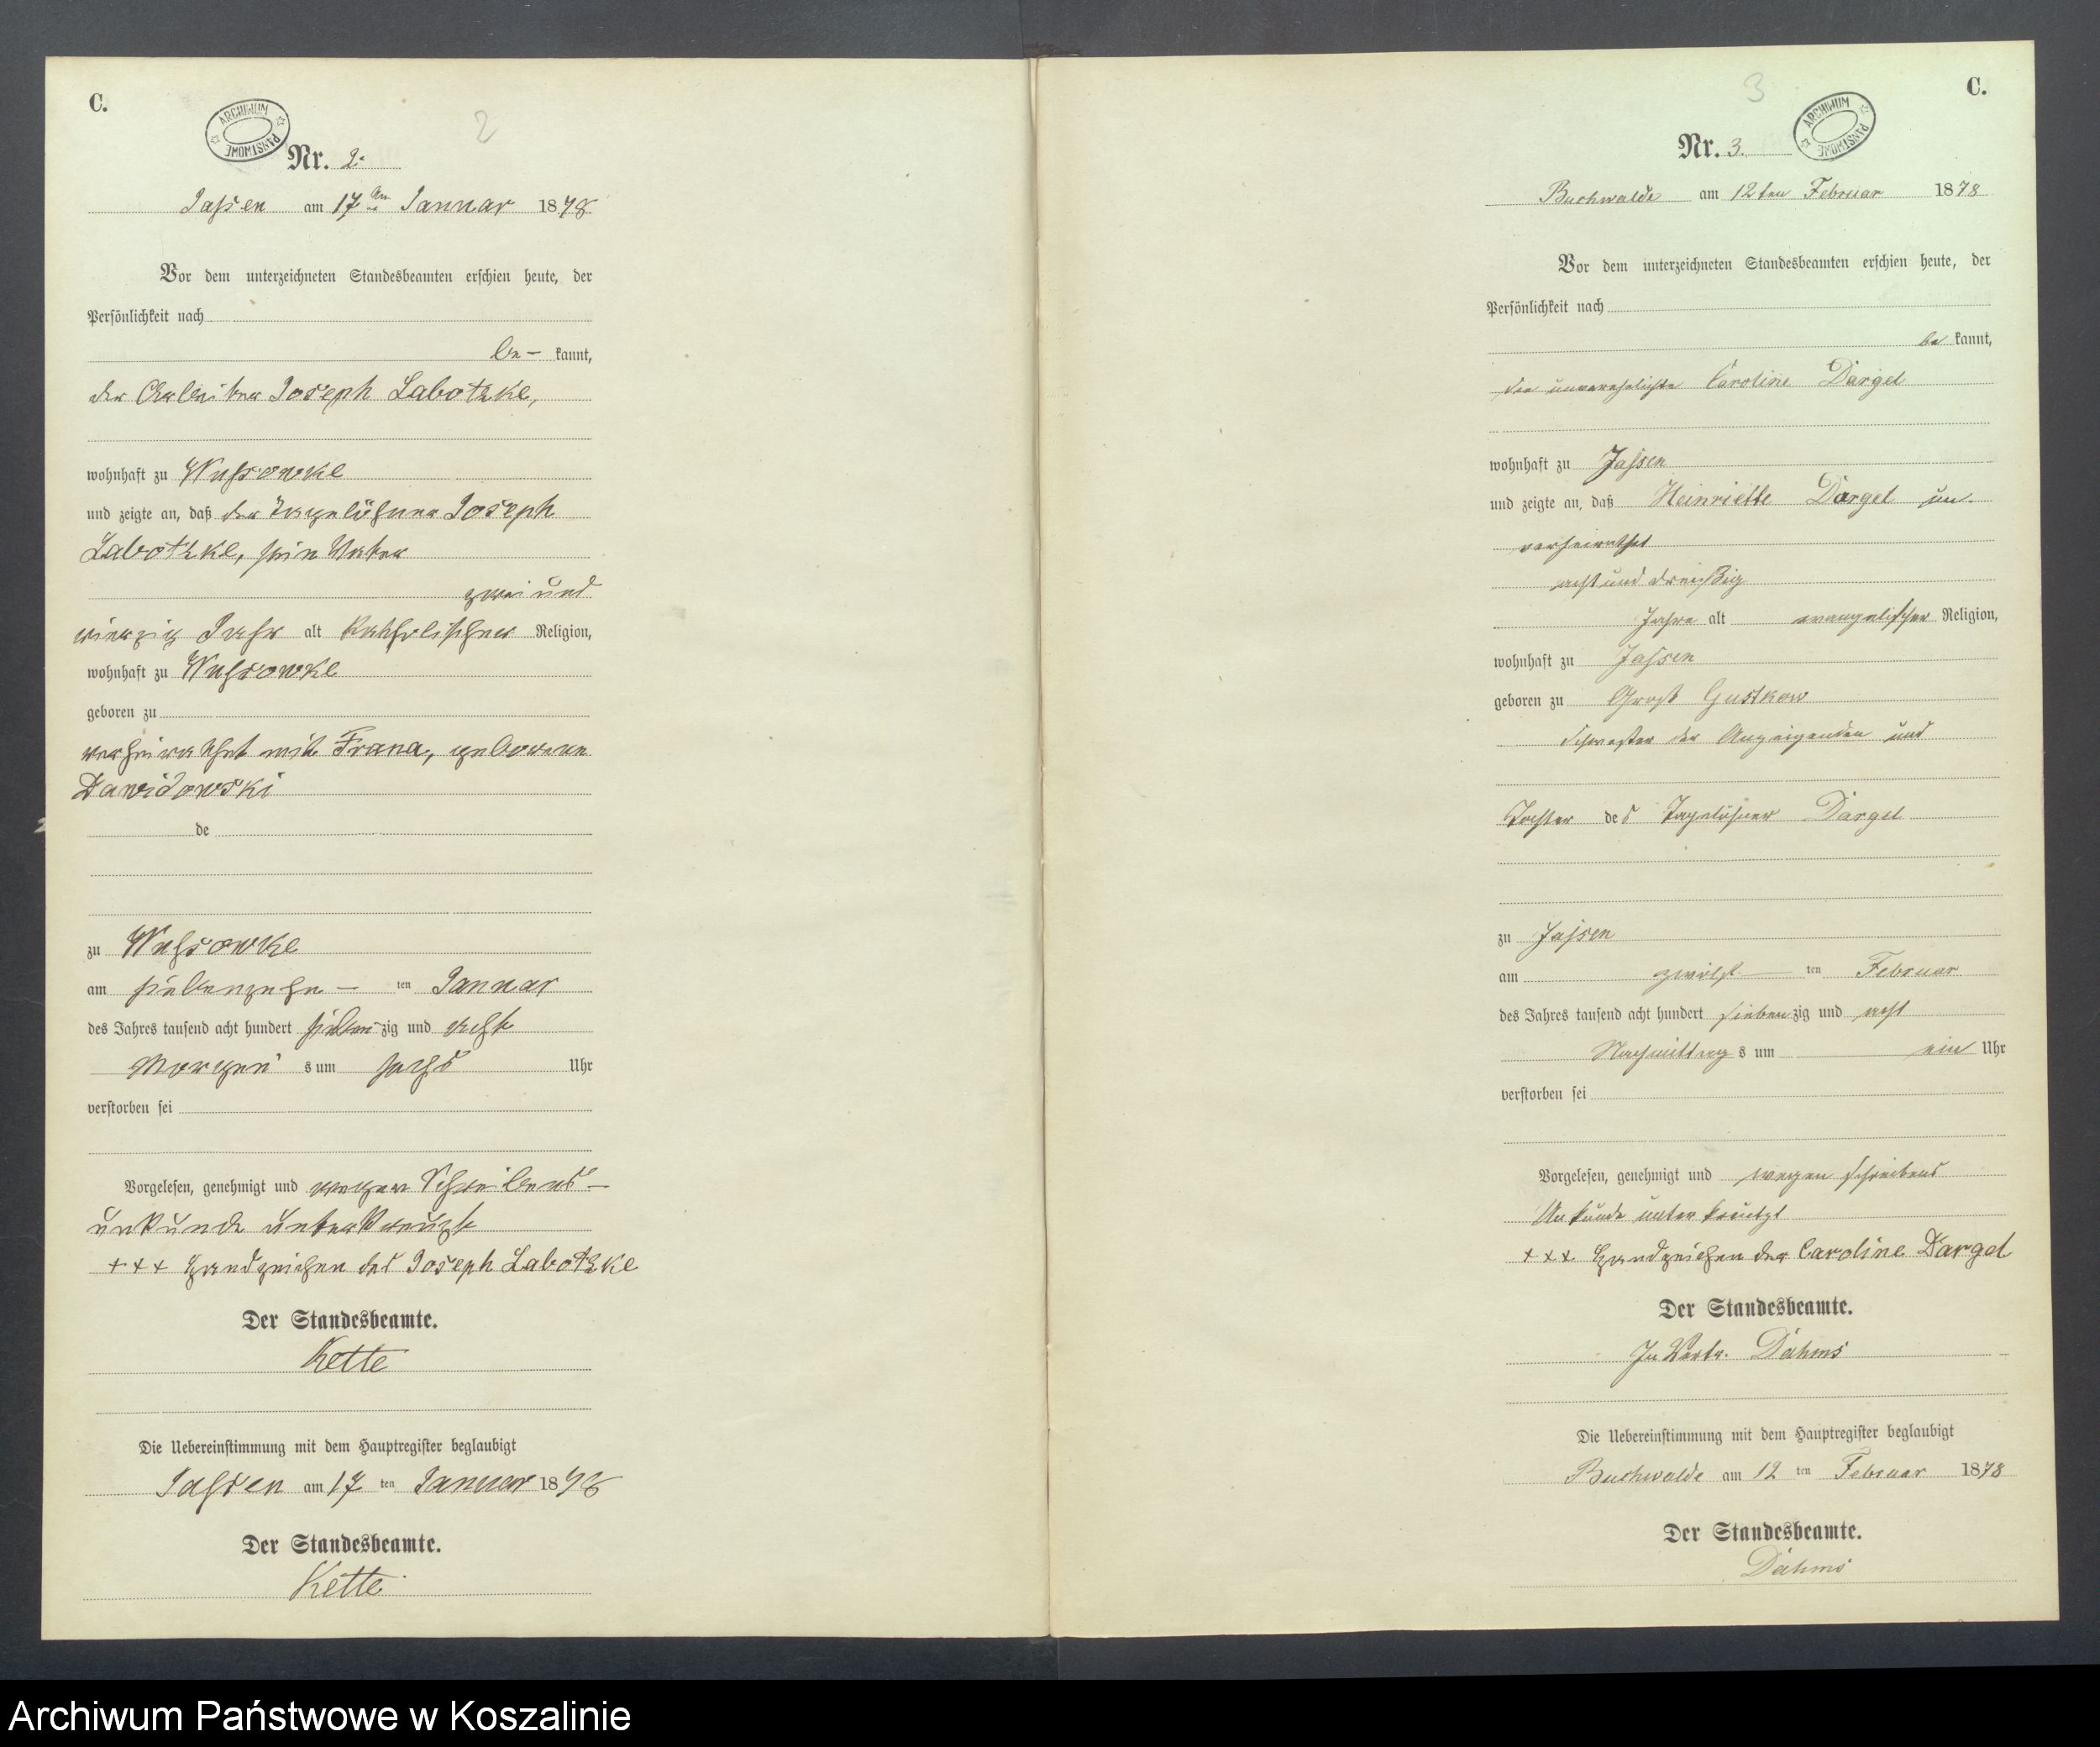 C.
ARCHIWUM PAŃSTWOWE
2
Nr. 2.
Jassen am 17ten Januar 1878
Vor dem unterzeichneten Standesbeamten erschien heute, der
Persönlichkeit nach
be- kannt,
der Arbeiter Joseph Labotzke,
wohnhaft zu Wussowke
und zeigte an, daß der Tagelöhner Joseph
Labotzke, sein Vater
zwei und
vierzig Jahr alt katholischer Religion,
wohnhaft zu Wussowke
geboren zu
verheirathet mit Frana, geborene
Dawidowski
de
zu Wussowke
am siebenzehn- ten Januar
des Jahres tausend acht hundert sieben zig und acht
Morgen s um sechs Uhr
verstorben sei
Vorgelesen, genehmigt und wegen Schreibens-
unkunde unterkreuzt
+++ Handzeichen des Joseph Labotzke
Der Standesbeamte.
Kette
Die Uebereinstimmung mit dem Hauptregister beglaubigt
Jassen am 17 ten Januar 1878
Der Standesbeamte.
Kette
3
C.
ARCHIWUM PAŃSTWOWE
Nr. 3.
Buchwalde am 12ten Februar 1878
Vor dem unterzeichneten Standesbeamten erschien heute, der
Persönlichkeit nach
be kannt,
die unverehelichte Caroline Dargel
wohnhaft zu Jassen
und zeigte an, daß Heinriette Dargel un-
verheirathet
acht und dreißig
Jahre alt evangelischer Religion,
wohnhaft zu Jassen
geboren zu Groß Gustkow
Schwester der Anzeigenden und
Tochter des Tagelöhner Dargel
zu Jassen
am zwölf ten Februar
des Jahres tausend acht hundert sieben zig und acht
Nachmittag s um ein Uhr
verstorben sei
Vorgelesen, genehmigt und wegen Schreibens
Unkunde unterkreutzt
+++ Handzeichen der Caroline Dargel
Der Standesbeamte.
In Vertr. Dahms
Die Uebereinstimmung mit dem Hauptregister beglaubigt
Buchwalde am 12 ten Februar 1878
Der Standesbeamte.
Dahms
Archiwum Państwowe w Koszalinie